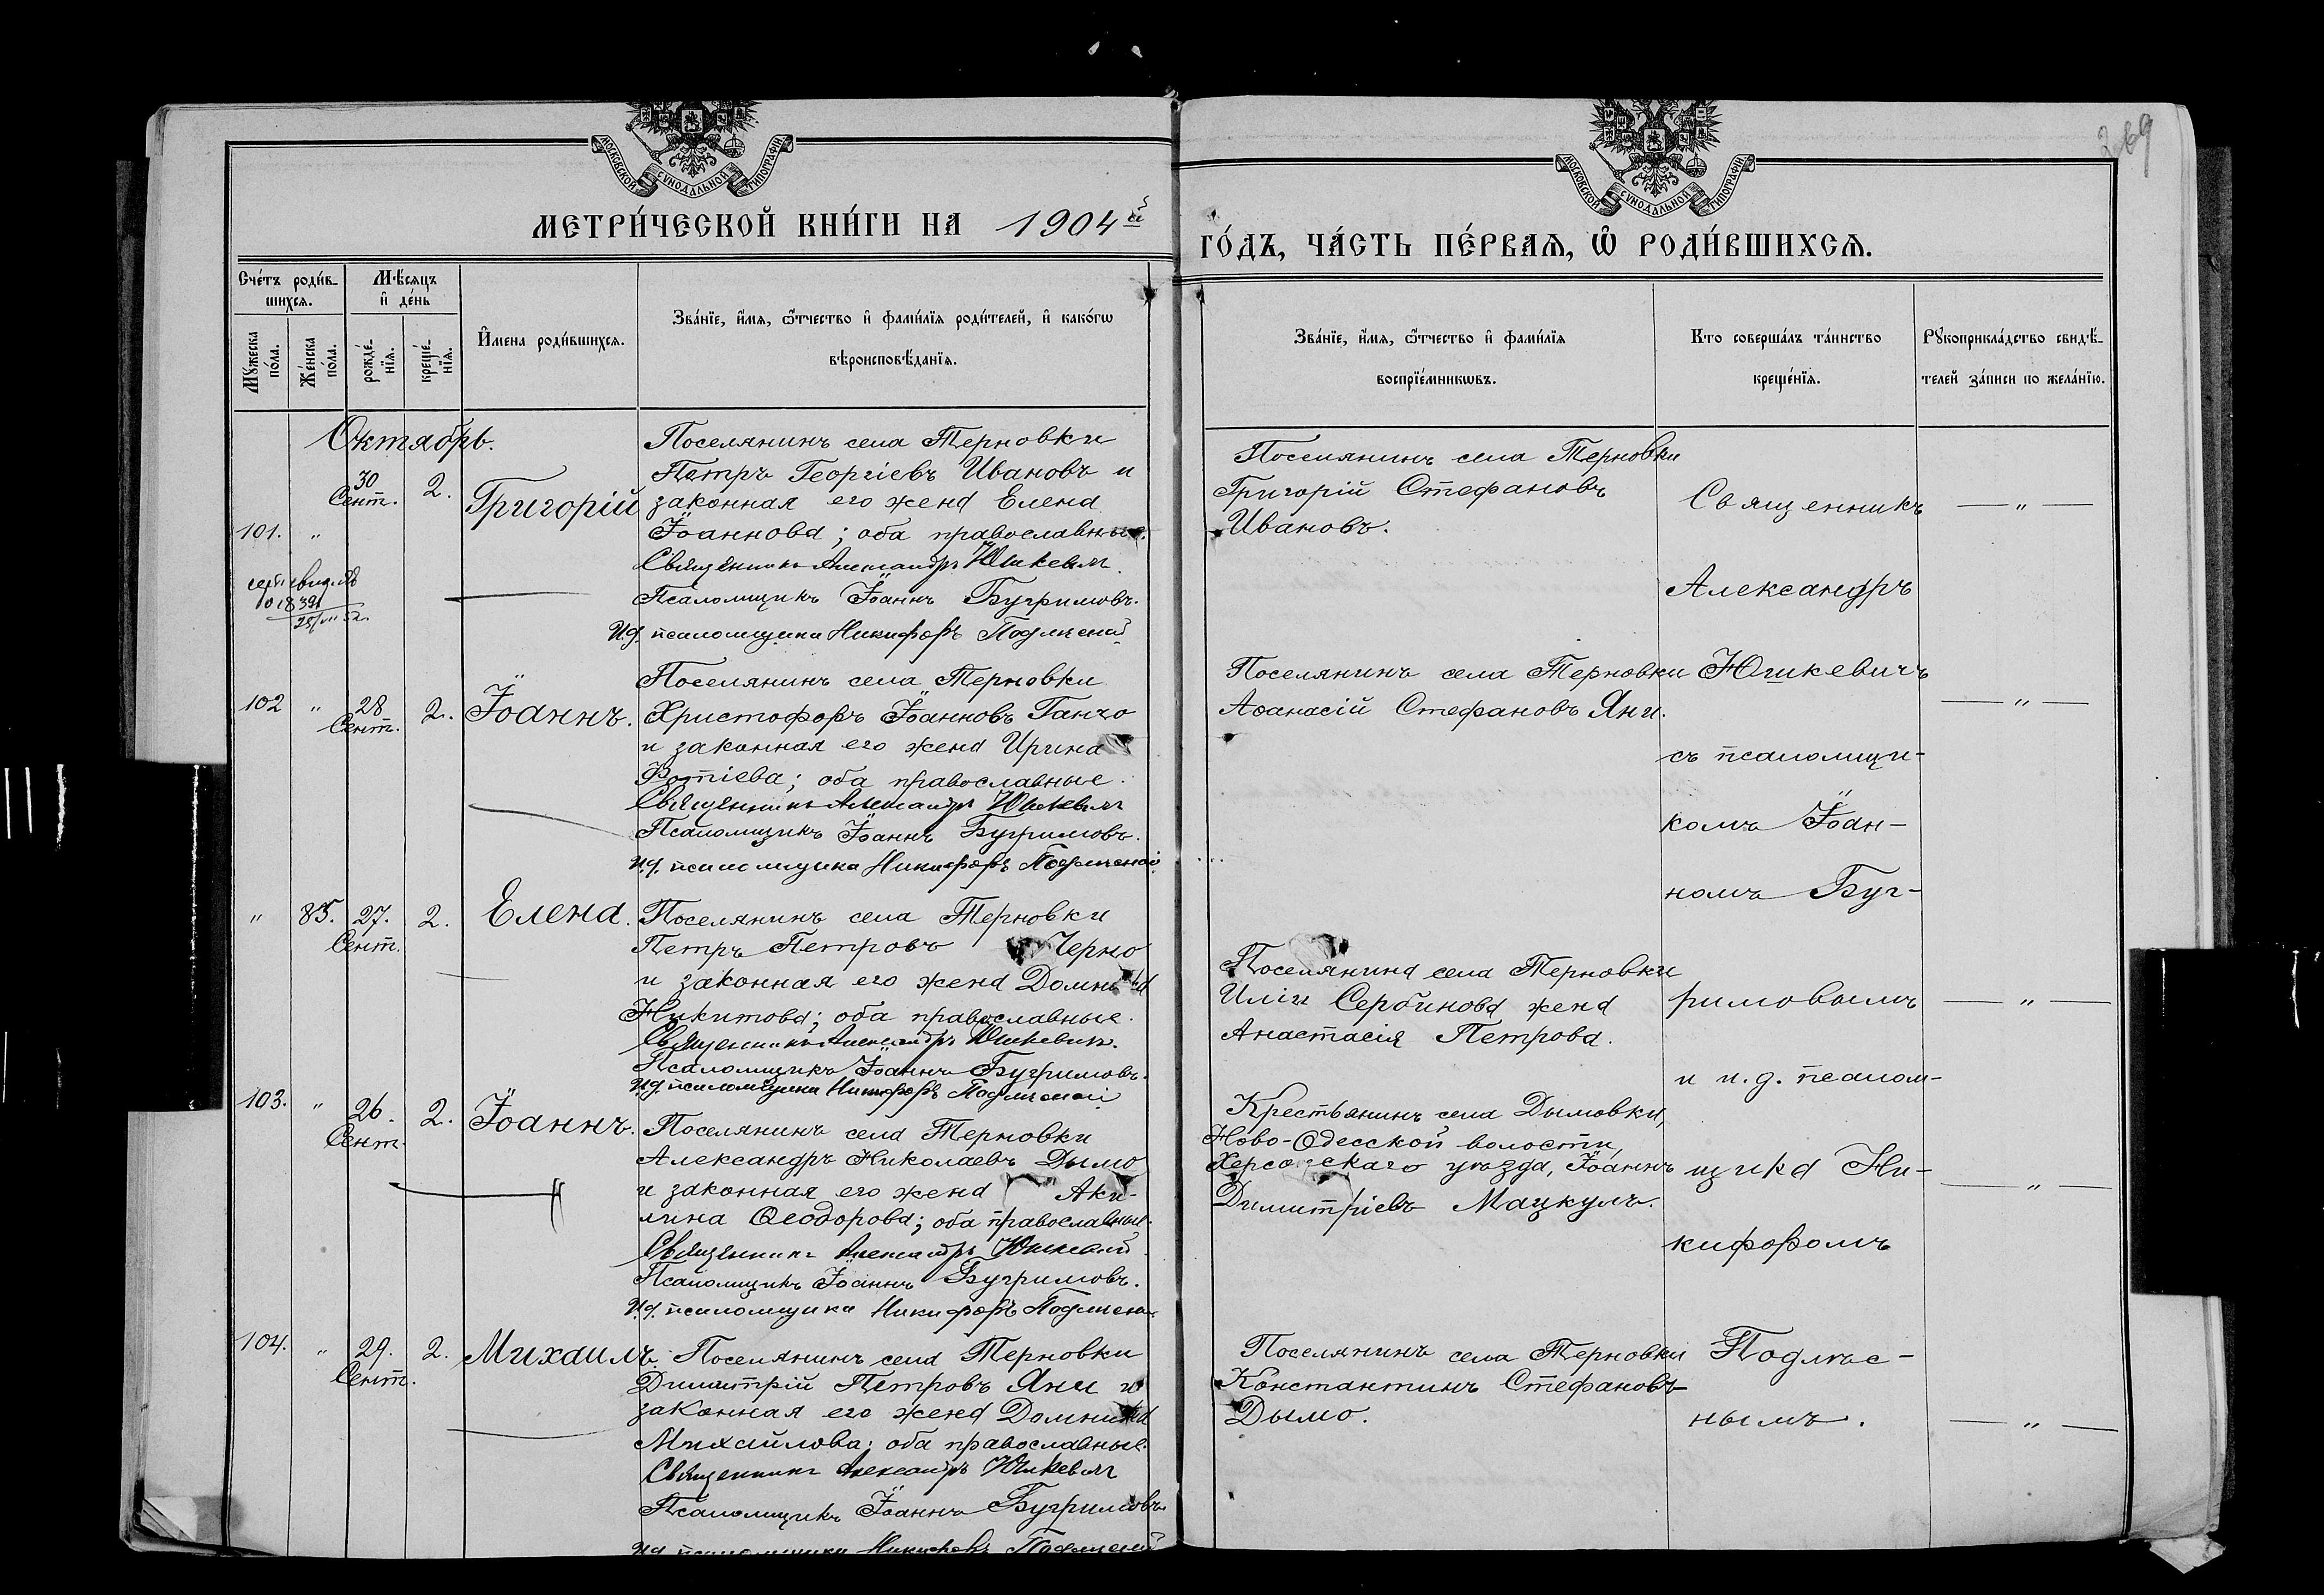 МОСКОВСКОЙ СѴНОДАЛЬНОЙ ТИПОГРАФІИ
МОСКОВСКОЙ СѴНОДАЛЬНОЙ ТИПОГРАФІИ
269
МЕТРИ́ЧЕСКОЙ КНИ́ГИ НА 1904й
ГО́ДЪ, ЧА́СТЬ ПЕ́РВАѦ, Ѽ РОДИ́ВШИХСѦ.
Сче́тъ роди́в-
шихсѧ.
Мꙋ́жеска по́ла.
Же́нска по́ла.
Мѣ́сяцъ
и҆ де́нь
рожде́-нїѧ.
креще́-нїѧ.
И҆мена роди́вшихсѧ.
Зва́нїе, и҆́мѧ, ѻ҆́тчество и҆ фами́лїѧ роди́телей, и҆ како́гѡ
вѣроисповѣ́данїѧ.
Зва́нїе, и҆́мѧ, ѻ҆́тчество и҆ фами́лїѧ
воспрїе́мникѡвъ.
Кто соверша́лъ та́инство
креще́нїѧ.
Рꙋкоприкла́дство свидѣ́-
телей за́писи по жела́нїю.
Октябрь.
101. " 30 Сент. 2. Григорій
Поселянинъ села Терновки
Петръ Георгіевъ Ивановъ и
законная его жена Елена
Іоаннова; оба православные.
Священникъ Александръ Юшкевичъ.
Псаломщикъ Іоаннъ Бугримовъ.
И.д. псаломщика Никифоръ Подлѣсной
Поселянинъ села Терновки
Григорій Стефановъ
Ивановъ.
— " —
102 " 28 Сент. 2. Іоаннъ.
Поселянинъ села Терновки
Христофоръ Іоанновъ Ганчо
и законная его жена Ирина
Фотіева; оба православные.
Священникъ Александръ Юшкевичъ
Псаломщикъ Іоаннъ Бугримовъ.
И.д. псаломщика Никифоръ Подлѣсной
Поселянинъ села Терновки
Аѳанасій Стефановъ Яни.
— " —
" 85. 27. Сент. 2. Елена.
Поселянинъ села Терновки
Петръ Петровъ Черно
и законная его жена
Никитова; оба православные.
Священникъ Александръ Юшкевичъ.
Псаломщикъ Іоаннъ Бугримовъ.
И.д. псаломщика Никифоръ Подлѣсной
Поселянина села Терновки
Иліи Сербинова жена
Анастасія Петрова.
— " —
103. " 26. Сент. 2. Іоаннъ.
Поселянинъ села Терновки
Александръ Николаевъ Дымо
и законная его жена Аки-
лина Ѳеодорова; оба православные.
Священникъ Александръ Юшкевичъ
Псаломщикъ Іоаннъ Бугримовъ.
И.д. псаломщика Никифоръ Подлѣсной
Крестьянинъ села Дымовки,
Ново-Одесской волости,
Херсонскаго уѣзда, Іоаннъ
Димитріевъ Мацкулъ.
— " —
104. " 29. Сент. 2. Михаилъ.
Поселянинъ села Терновки
Димитрій Петровъ Яни и
законная его жена
Михайлова; оба православные.
Священникъ Александръ Юшкевичъ
Псаломщикъ Іоаннъ Бугримовъ
И.д. псаломщика Никифоръ Подлѣсной
Поселянинъ села Терновки
Константинъ Стефановъ
Дымо.
— " —
Священникъ
Александръ
Юшкевичъ
съ псаломщи-
комъ Іоан-
номъ Буг-
римовымъ
и и.д. псалом-
щика Ни-
кифоромъ
Подлѣс-
нымъ.